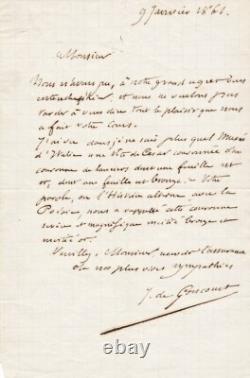 9 Janvier 186
Monsieur
Nous n'avons pu, à notre grand regret, vous
et nous ne voulons plus
tarder à vous dire tout le plaisir que nous
a fait votre
J'ai vu dans je ne sais plus quel Musée
d'Italie une tête de César couronnée d'une
couronne de lauriers dont une feuille est
or, dont une feuille est bronze. Votre
parole, où l'Histoire alterne avec la
Poésie, nous a rappelé cette couronne
et magnifique moitié bronze et
moitié or.
Veuillez, Monsieur, l'assurance
de nos plus vives sympathies
J. de Goncourt
© 1worthit.com